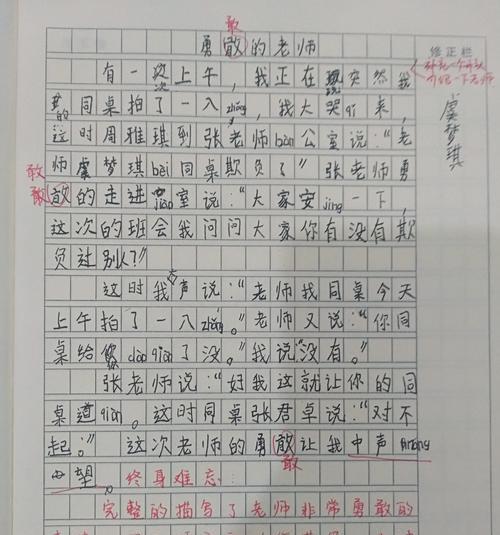 敢
勇敢的老师
修正栏
有一次上午，我正在突然我
补充一个开头
介绍一下老师
的同桌拍了一入zhǎng，我大哭qǐ来，
虞梦琪
这时周雅琪到张老师bàn公室说：“老
师虞梦琪bèi同桌欺负了”张老师勇
敢
敢敢的走进jiào室说：“大家安jìng一下，
这次的班会我问问大家你有没有欺
负过别人？”
这时我大声说：“老师我同桌今天
上午拍了一入zhǎng。”老师又说：“你同
桌给你dào qiàn了没。”我说“没有。”
张老师说：“好我这就让你的同
桌道qiàn。这时同桌张君卓说：“对不
起。”这次老师的勇敢让我中声náng
敢
望。终身难忘
完整的描写了老师非常勇敢的